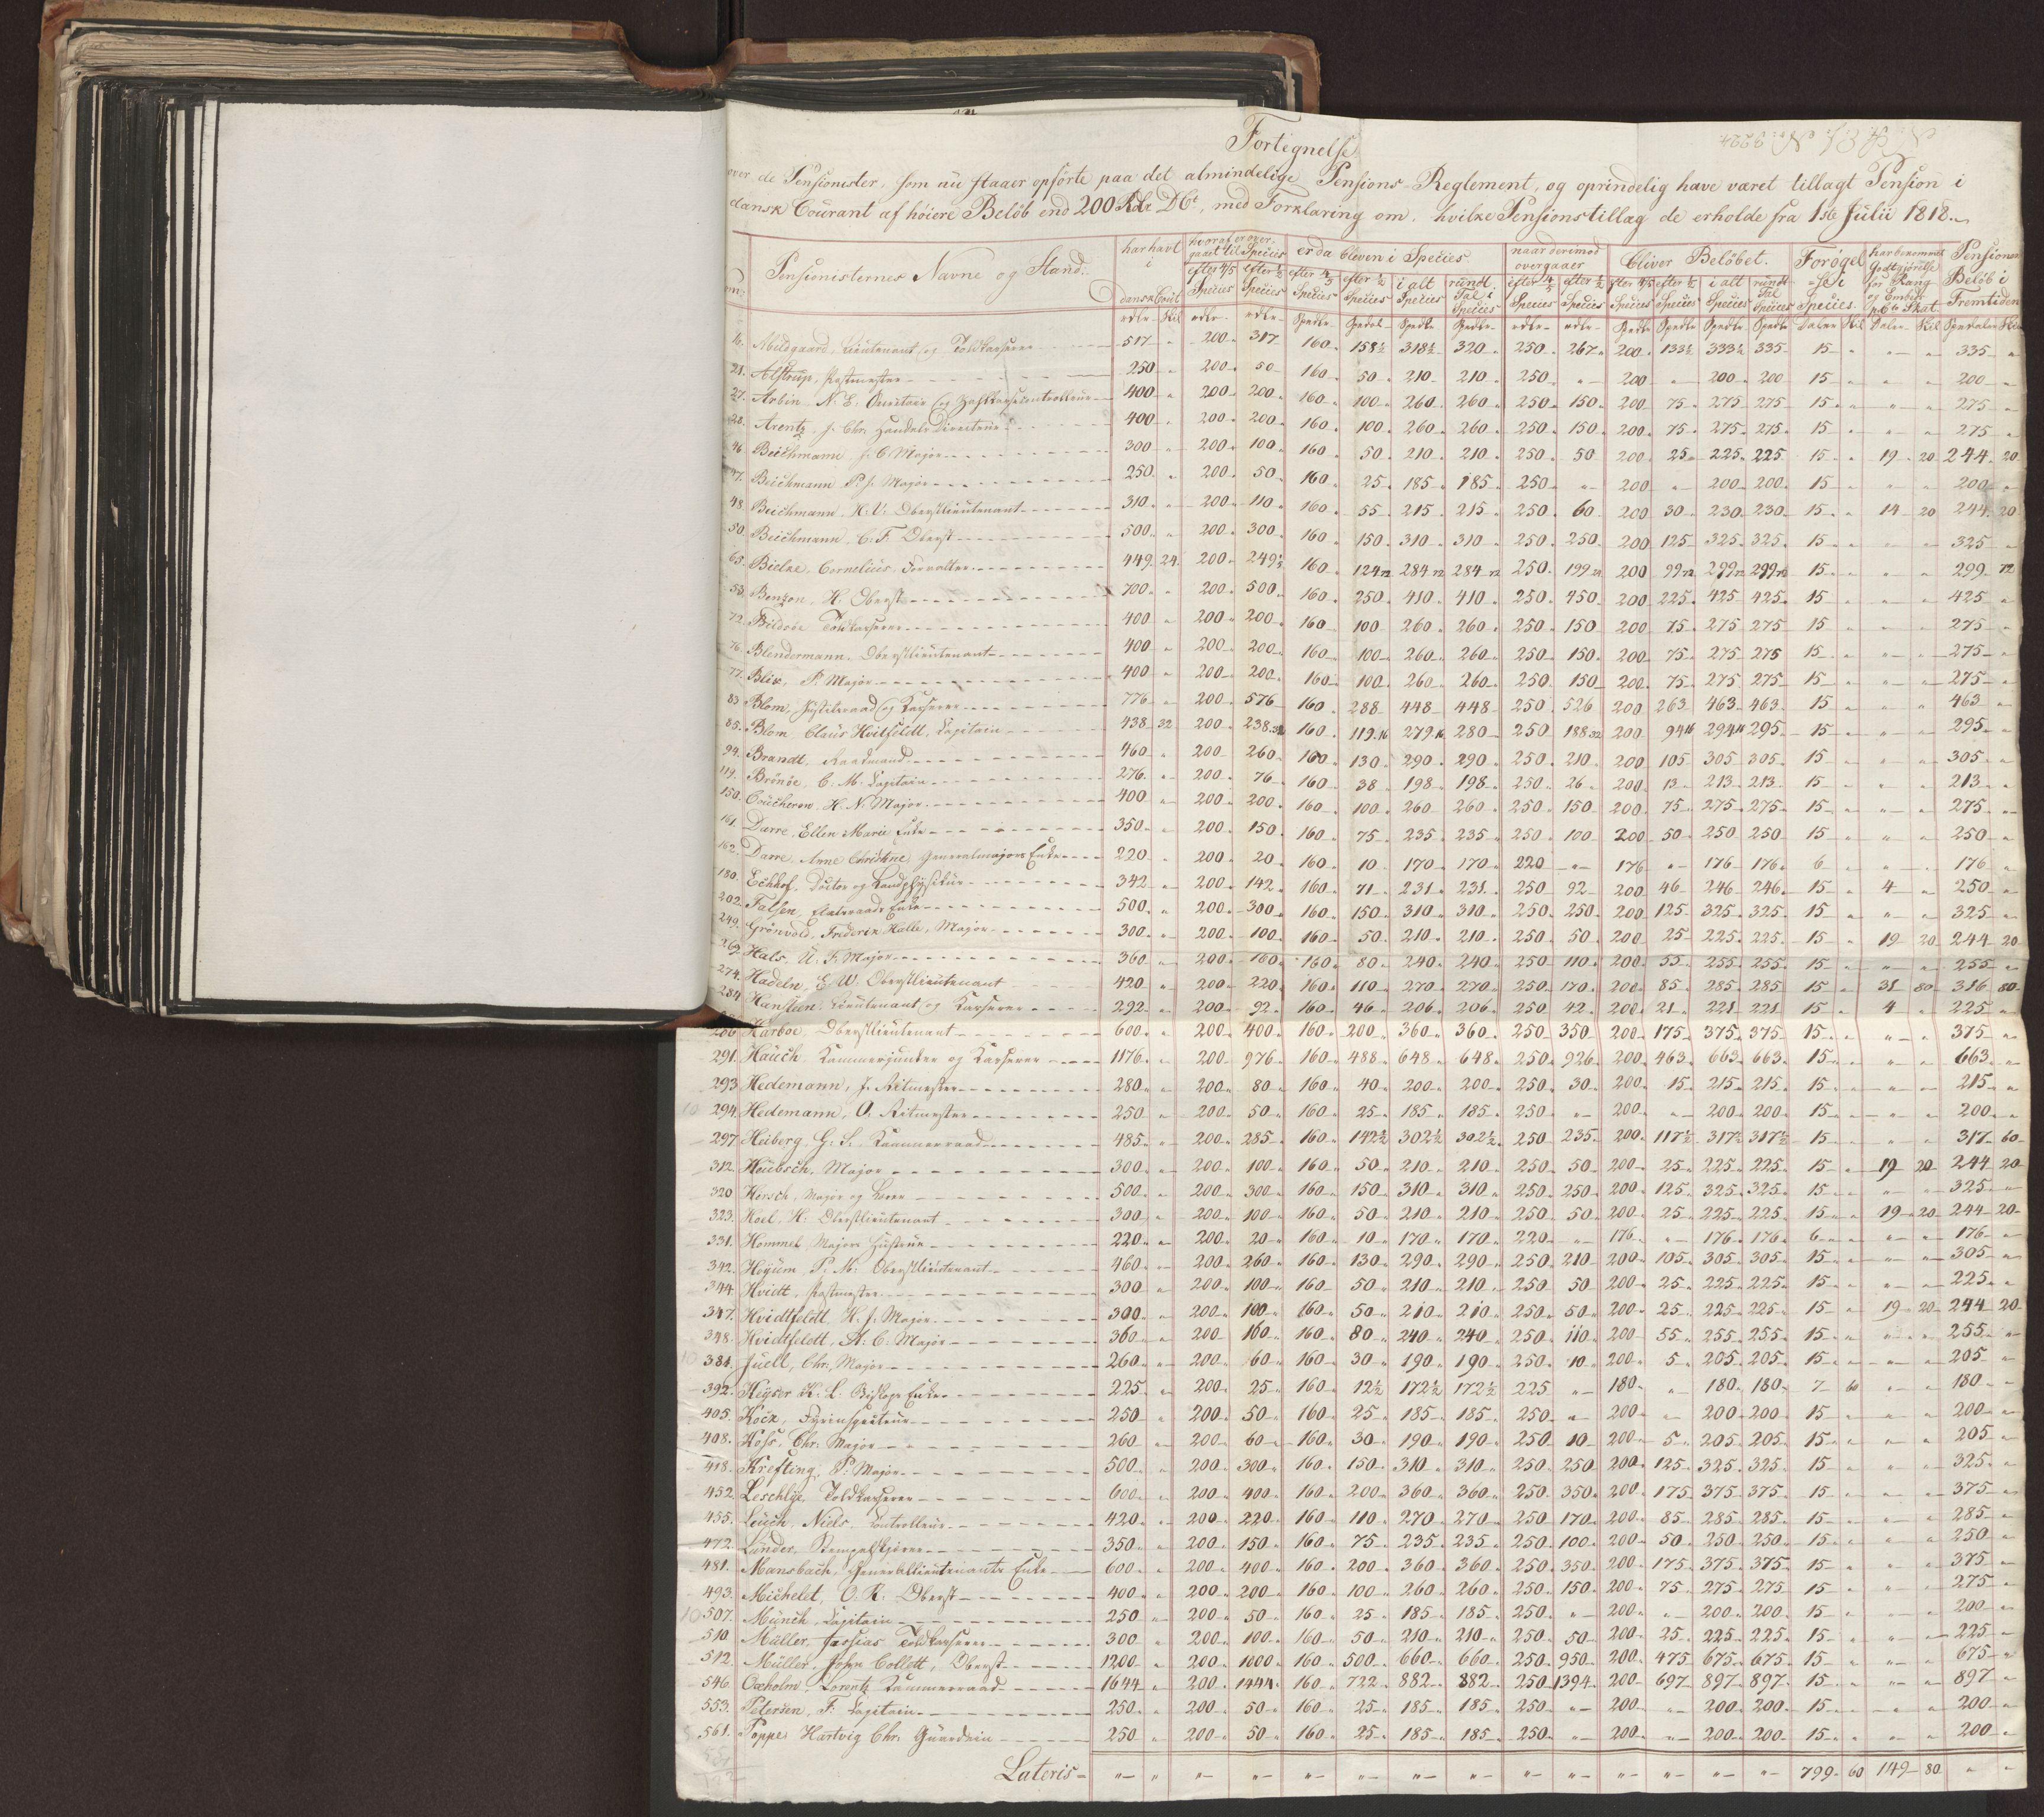 Fortegnelse
over de Pensionister, som nu staaer opförte paa det almindelige Pensions-Reglement, og oprindelig have været tillagt Pension i
dansk Courant af höiere Belöb end 200 Rdlr DCt, med Forklaring om, hvilke Pensionstillæg de erholde fra 1ste Julii 1818.
Pensionisternes Navne og Stand. har havt i dansk Cour. hvoraf er overgaaet til Species efter 4/5 Species efter 1/2 Species er da bleven i Species efter 4/5 Species efter 1/2 Species i alt Species rundt Tal i Species naar derimod overgaaer efter 4/5 Species efter 1/2 Species bliver Belöbet. efter 4/5 Species efter 1/2 Species i alt Species rundt Tal Species Forögelse i Species har benevnt Godtgjörelse for Rang og Embeds Skat. Pensionens Belöb i Fremtiden
16. Abildgaard, Lieutenant og Toldkasserer 517 " 200 317 160 158½ 318½ 320 250 267 200 133½ 333½ 335 15 " " " 335 "
21. Alstrup, Postmester 250 " 200 50 160 50 210 210 250 " 200 " 200 200 15 " " " 200 "
27. Arbin N. E. 400 " 200 200 160 100 260 260 250 150 200 75 275 275 15 " " " 275 "
28. Arentz, J. Chr. Handels Directeur 400 " 200 200 160 100 260 260 250 150 200 75 275 275 15 " " " 275 "
46. Beichmann, J. C. Major 300 " 200 100 160 50 210 210 250 50 200 25 225 225 15 " 19 20 244 20
47. Beichmann P. J. Major 250 " 200 50 160 25 185 185 250 " 200 " 200 200 15 " " " 200 "
48. Beichmann, H. V. Oberstlieutenant 310 " 200 110 160 55 215 215 250 60 200 30 230 230 15 " 14 20 244 20
50. Beichmann, C. F. Oberst 500 " 200 300 160 150 310 310 250 250 200 125 325 325 15 " " " 325 "
65. Bielke, Cornelius, Forvalter 449 24 200 249½ 160 124 72 284 72 284 72 250 199 24 200 99 72 299 72 299 72 15 " " " 299 72
53. Benzon, H. Oberst 700 " 200 500 160 250 410 410 250 450 200 225 425 425 15 " " " 425 "
72. Bildsöe Toldkasserer 400 " 200 200 160 100 260 260 250 150 200 75 275 275 15 " " " 275 "
76. Blendermann, Oberstlieutenant 400 " 200 200 160 100 260 260 250 150 200 75 275 275 15 " " " 275 "
77. Blix, P. Major 400 " 200 200 160 100 260 260 250 150 200 75 275 275 15 " " " 275 "
83. Blom, Justitsraad og Kasserer 776 " 200 576 160 288 448 448 250 526 200 263 463 463 15 " " " 463 "
85. Blom Claus Hvitfeldt, Capitain 438 32 200 238.32 160 119.16 279.16 280 250 188 32 200 94 16 294 16 295 15 " " " 295 "
94. Brandt, Raadmand 460 " 200 260 160 130 290 290 250 210 200 105 305 305 15 " " " 305 "
119. Brönöe, C. M. Capitain 276 " 200 76 160 38 198 198 250 26 200 13 213 213 15 " " " 213 "
150. Coucheron, H. N. Major 400 " 200 200 160 100 260 260 250 150 200 75 275 275 15 " " " 275 "
161. Darre, Ellen Marie Enke 350 " 200 150 160 75 235 235 250 100 200 50 250 250 15 " " " 250 "
162. Darre, Anne Christine, Generalmajors Enke 220 " 200 20 160 10 170 170 220 " 176 " 176 176 6 " " " 176 "
180. Eckhof, Doctor og Landphysikus 342 " 200 142 160 71 231 231 250 92 200 46 246 246 15 " 4 " 250 "
202. Falsen, Etatsraads Enke 500 " 200 300 160 150 310 310 250 250 200 125 325 325 15 " " " 325 "
249. Grönvold, Frederik Halle, Major 300 " 200 100 160 50 210 210 250 50 200 25 225 225 15 " 19 20 244 20
269. Hals, U. F. Major 360 " 200 160 160 80 240 240 250 110 200 55 255 255 15 " " " 255 "
274. Hadeln, E. W. Oberstlieutenant 420 " 200 220 160 110 270 270 250 170 200 85 285 285 15 " 31 80 316 80
284. Hansteen, Lieutenant og Kasserer 292 " 200 92 160 46 206 206 250 42 200 21 221 221 15 " 4 " 225 "
286. Harboe, Oberstlieutenant 600 " 200 400 160 200 360 360 250 350 200 175 375 375 15 " " " 375 "
291. Hauch, Kammerjunker og Kasserer 1176 " 200 976 160 488 648 648 250 926 200 463 663 663 15 " " " 663 "
293 Hedemann, J. Ritmester 280 " 200 80 160 40 200 200 250 30 200 15 215 215 15 " " " 215 "
10 294. Hedemann, O. Ritmester 250 " 200 50 160 25 185 185 250 " 200 " 200 200 15 " " " 200 "
297 Heiberg, G. S. Kammerraad 485 " 200 285 160 142½ 302½ 302½ 250 235 200 117½ 317½ 317½ 15 " " " 317 60
312. Heubsch, Major 300 " 200 100 160 50 210 210 250 50 200 25 225 225 15 " 19 20 244 20
320 Hersch, Major og 500 " 200 300 160 150 310 310 250 250 200 125 325 325 15 " " " 325 "
323. Hoel, H. Oberstlieutenant 300 " 200 100 160 50 210 210 250 50 200 25 225 225 15 " 19 20 244 20
331. Hommel Majors Hustrue 220 " 200 20 160 10 170 170 220 " 176 " 176 176 6 " " " 176 "
342. Höyum, P. M. Oberstlieutenant 460 " 200 260 160 130 290 290 250 210 200 105 305 305 15 " " " 305 "
344 Hvidt, Postmester 300 " 200 100 160 50 210 210 250 50 200 25 225 225 15 " " " 225 "
347. Hvidtfeldt, H. J. Major 300 " 200 100 160 50 210 210 250 50 200 25 225 225 15 " 19 20 244 20
348. Hvidtfeldt, A. C. Major 360 " 200 160 160 80 240 240 250 110 200 55 255 255 15 " " " 255 "
10 384. Juell, Chr. Major 260 " 200 60 160 30 190 190 250 10 200 5 205 205 15 " " " 205 "
392. Keyser K. L. Biskops Enke 225 " 200 25 160 12½ 172½ 172½ 225 " 180 " 180 180 7 60 " " 180 "
405. Kock, Fyrinspecteur 250 " 200 50 160 25 185 185 250 " 200 " 200 200 15 " " " 200 "
408. Koss, Chr. Major 260 " 200 60 160 30 190 190 250 10 200 5 205 205 15 " " " 205 "
418. Krefting, P. Major 500 " 200 300 160 150 310 310 250 250 200 125 325 325 15 " " " 325 "
452. Leschlye, Toldkasserer 600 " 200 400 160 200 360 360 250 350 200 175 375 375 15 " " " 375 "
455. Leuch, Niels, Controlleur 420 " 200 220 160 110 270 270 250 170 200 85 285 285 15 " " " 285 "
472. Lunder, Stempelskjærer 350 " 200 150 160 75 235 235 250 100 200 50 250 250 15 " " " 250 "
481. Mansbach, Generallieutenants Enke 600 " 200 400 160 200 360 360 250 350 200 175 375 375 15 " " " 375 "
493. Michelet, O. R. Oberst 400 " 200 200 160 100 260 260 250 150 200 75 275 275 15 " " " 275 "
10 507. Münch, Capitain 250 " 200 50 160 25 185 185 250 " 200 " 200 200 15 " " " 200 "
510 Müller, Jossias Toldkasserer 300 " 200 100 160 50 210 210 250 50 200 25 225 225 15 " " " 225 "
512. Müller, John Collett, Oberst 1200 " 200 1000 160 500 660 660 250 950 200 475 675 675 15 " " " 675 "
546. Oxholm, Lorentz Kammerraad 1644 " 200 1444 160 722 882 882 250 1394 200 697 897 897 15 " " " 897 "
553. Petersen, F. Capitain 250 " 200 50 160 25 185 185 250 " 200 " 200 200 15 " " " 200 "
561. Poppe Hartvig Chr. Guardein 250 " 200 50 160 25 185 185 250 " 200 " 200 200 15 " " " 200 "
Lateris " " " " " " " " " " " " " " 799 60 149 80 " "